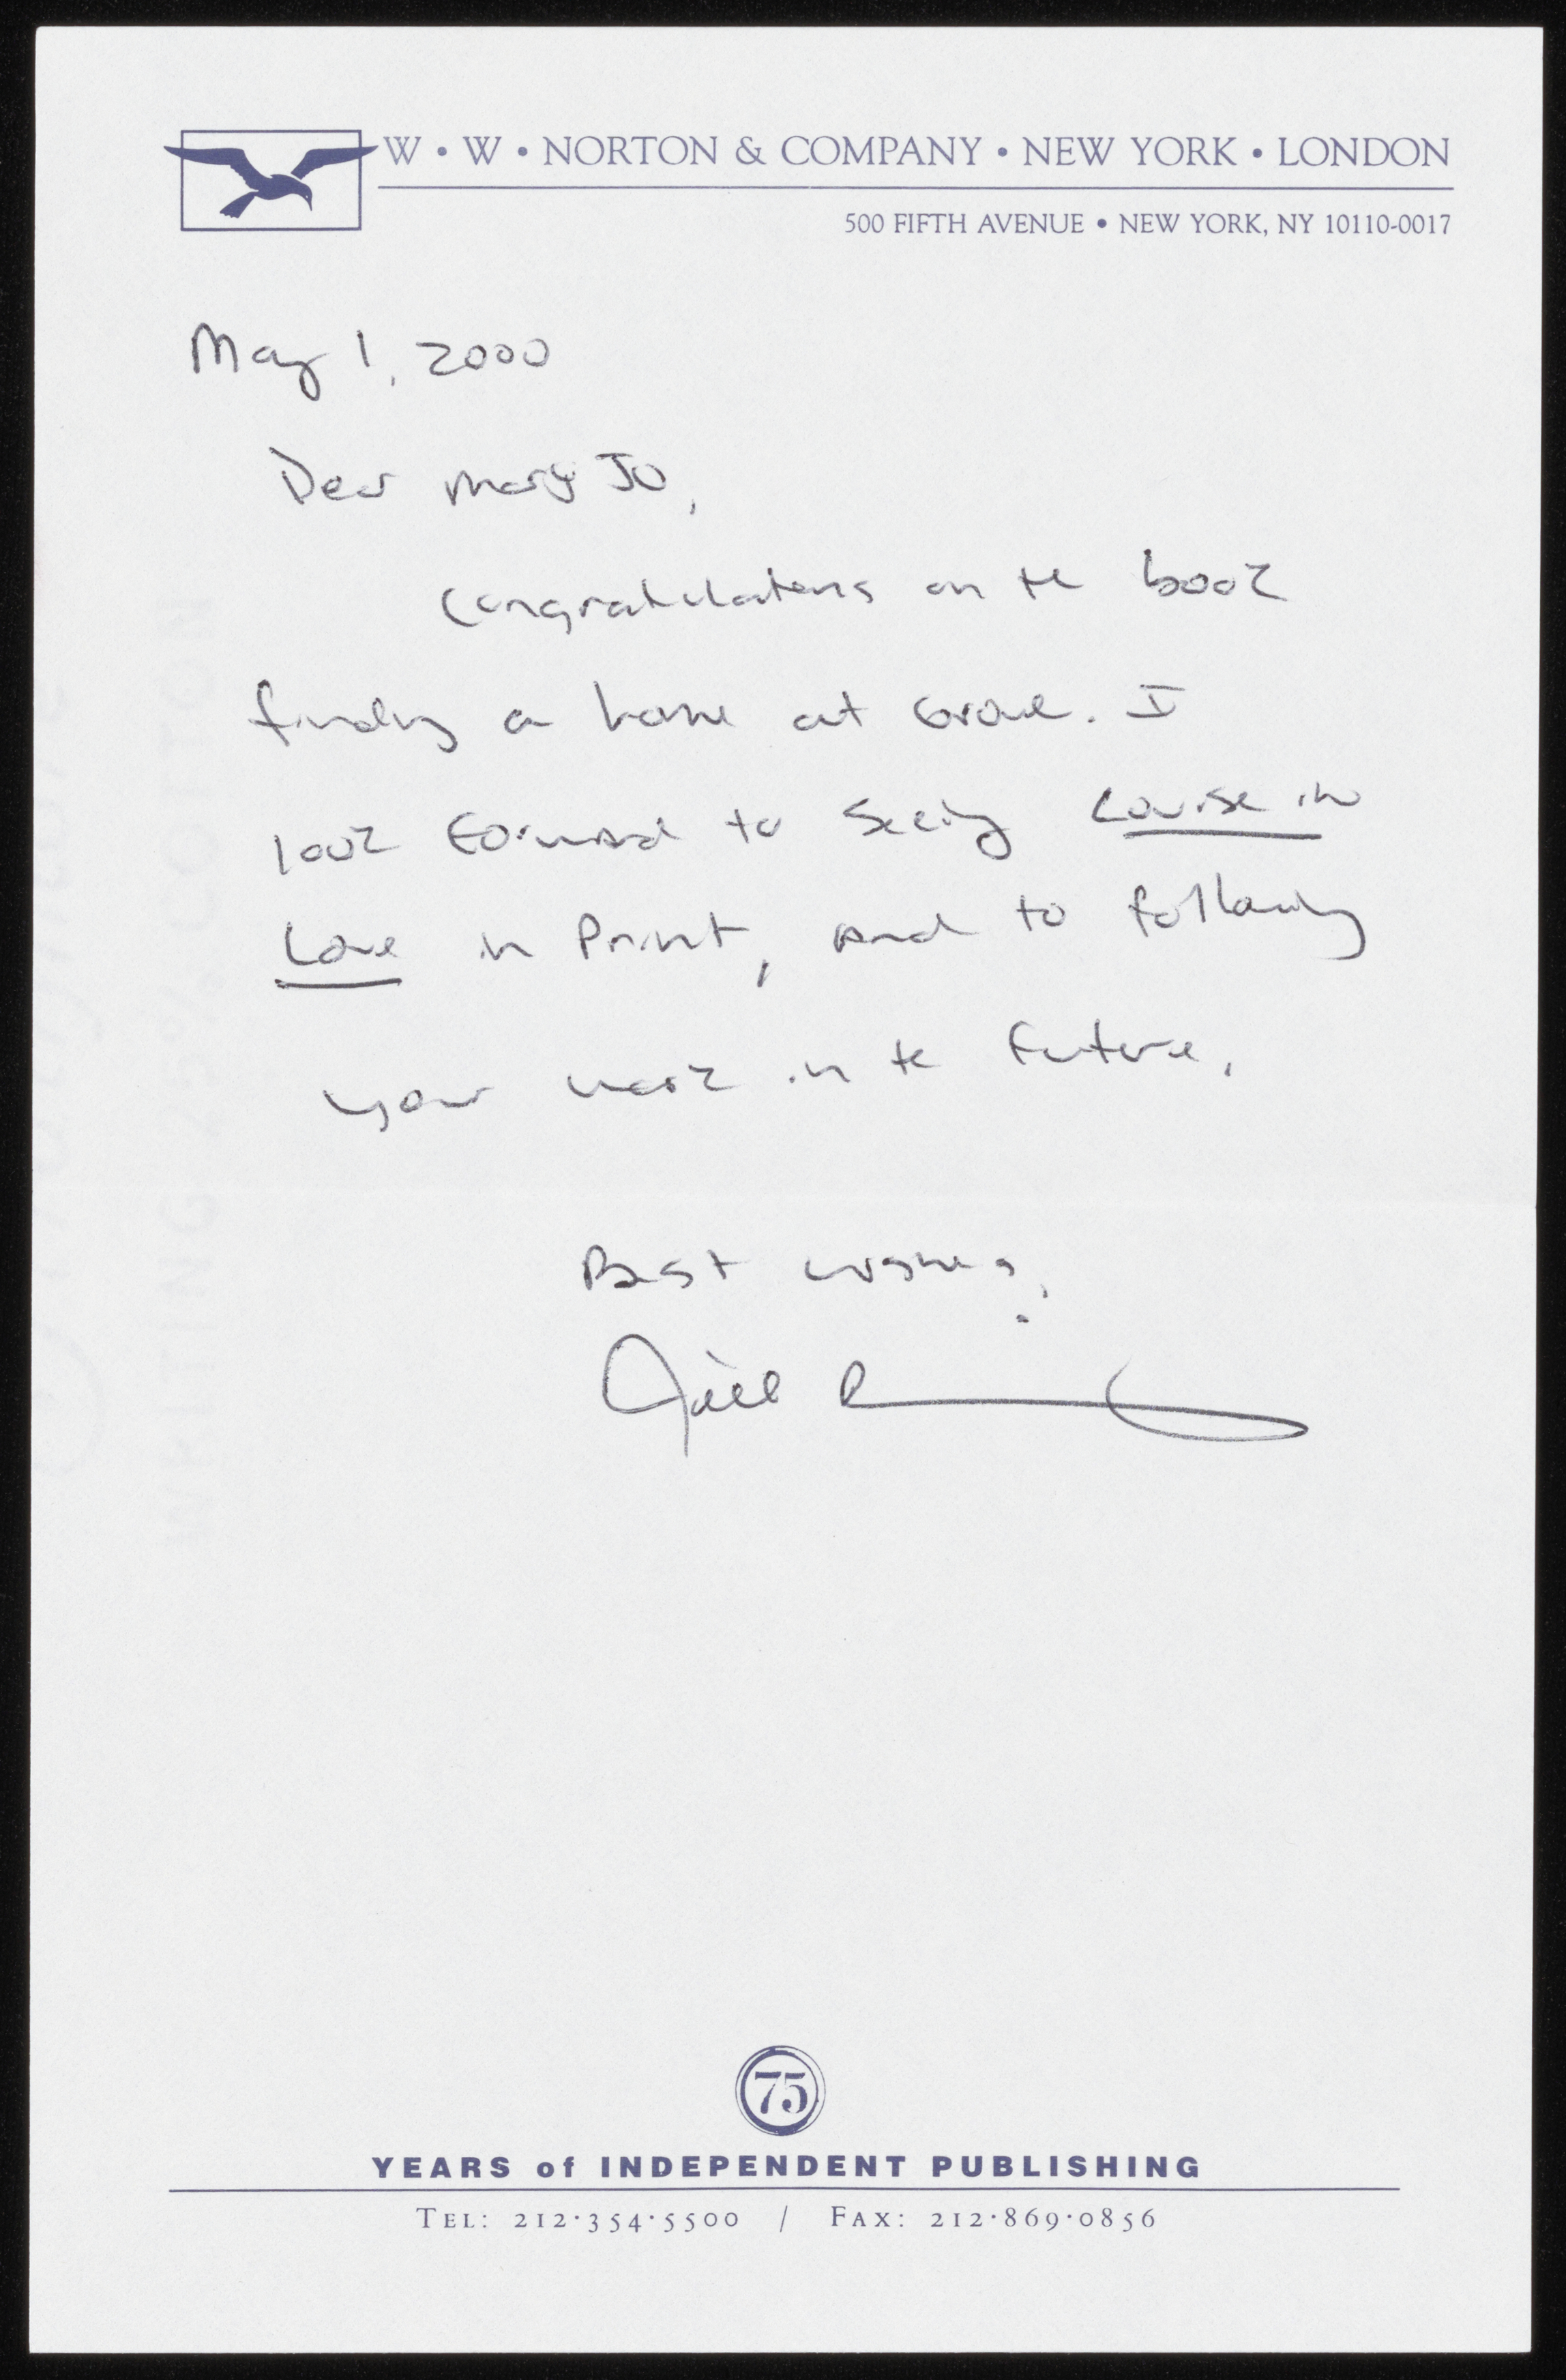 W • W • NORTON & COMPANY • NEW YORK • LONDON
500 FIFTH AVENUE • NEW YORK, NY 10110-0017
May 1, 2000
Dear Mary Jo,
Congratulations on the book
finding a home at Grove. I
look forward to seeing Louise in
Love in print, and to following
your work in the future.
Best wishes,
Jill
75
YEARS of INDEPENDENT PUBLISHING
TEL: 212·354·5500 / FAX: 212·869·0856